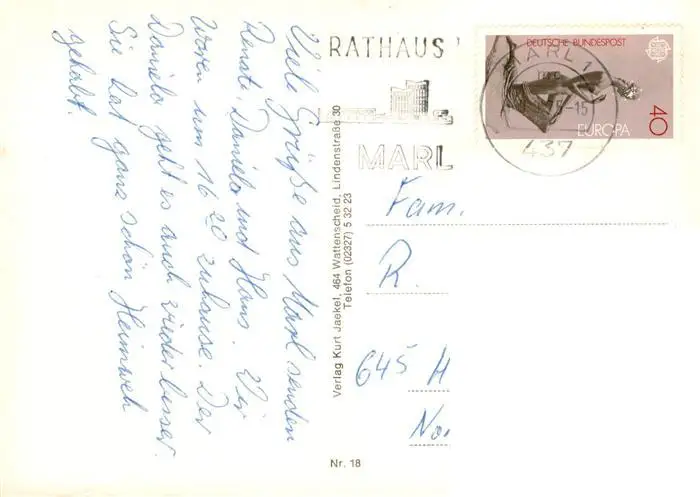 Viele Grüße aus Marl senden
Renate, Daniela und Hans. Wir
waren um 16 20 zuhause. Der
Daniela geht es auch wieder besser.
Sie hat ganz schön Heimweh
gehabt.
Verlag Kurt Jaekel, 464 Wattenscheid, Lindenstraße 30
Telefon (02327) 5 32 23
Nr. 18
RATHAUS
MARL
DEUTSCHE BUNDESPOST
EUROPA
40
MARL 1
-15
437
Fam.
R.
645 H
No